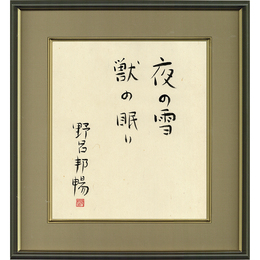 夜の雪
獣の眠り
野呂邦暢